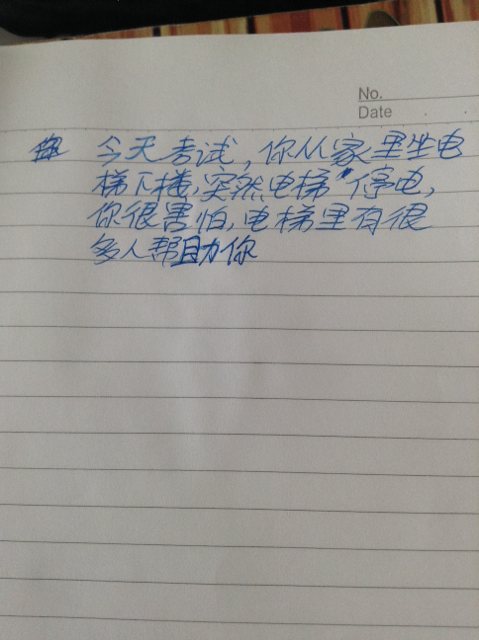 No.
Date
今天考试,你从家里坐电
梯下楼,突然电梯停电,
你很害怕,电梯里有很
多人帮助你